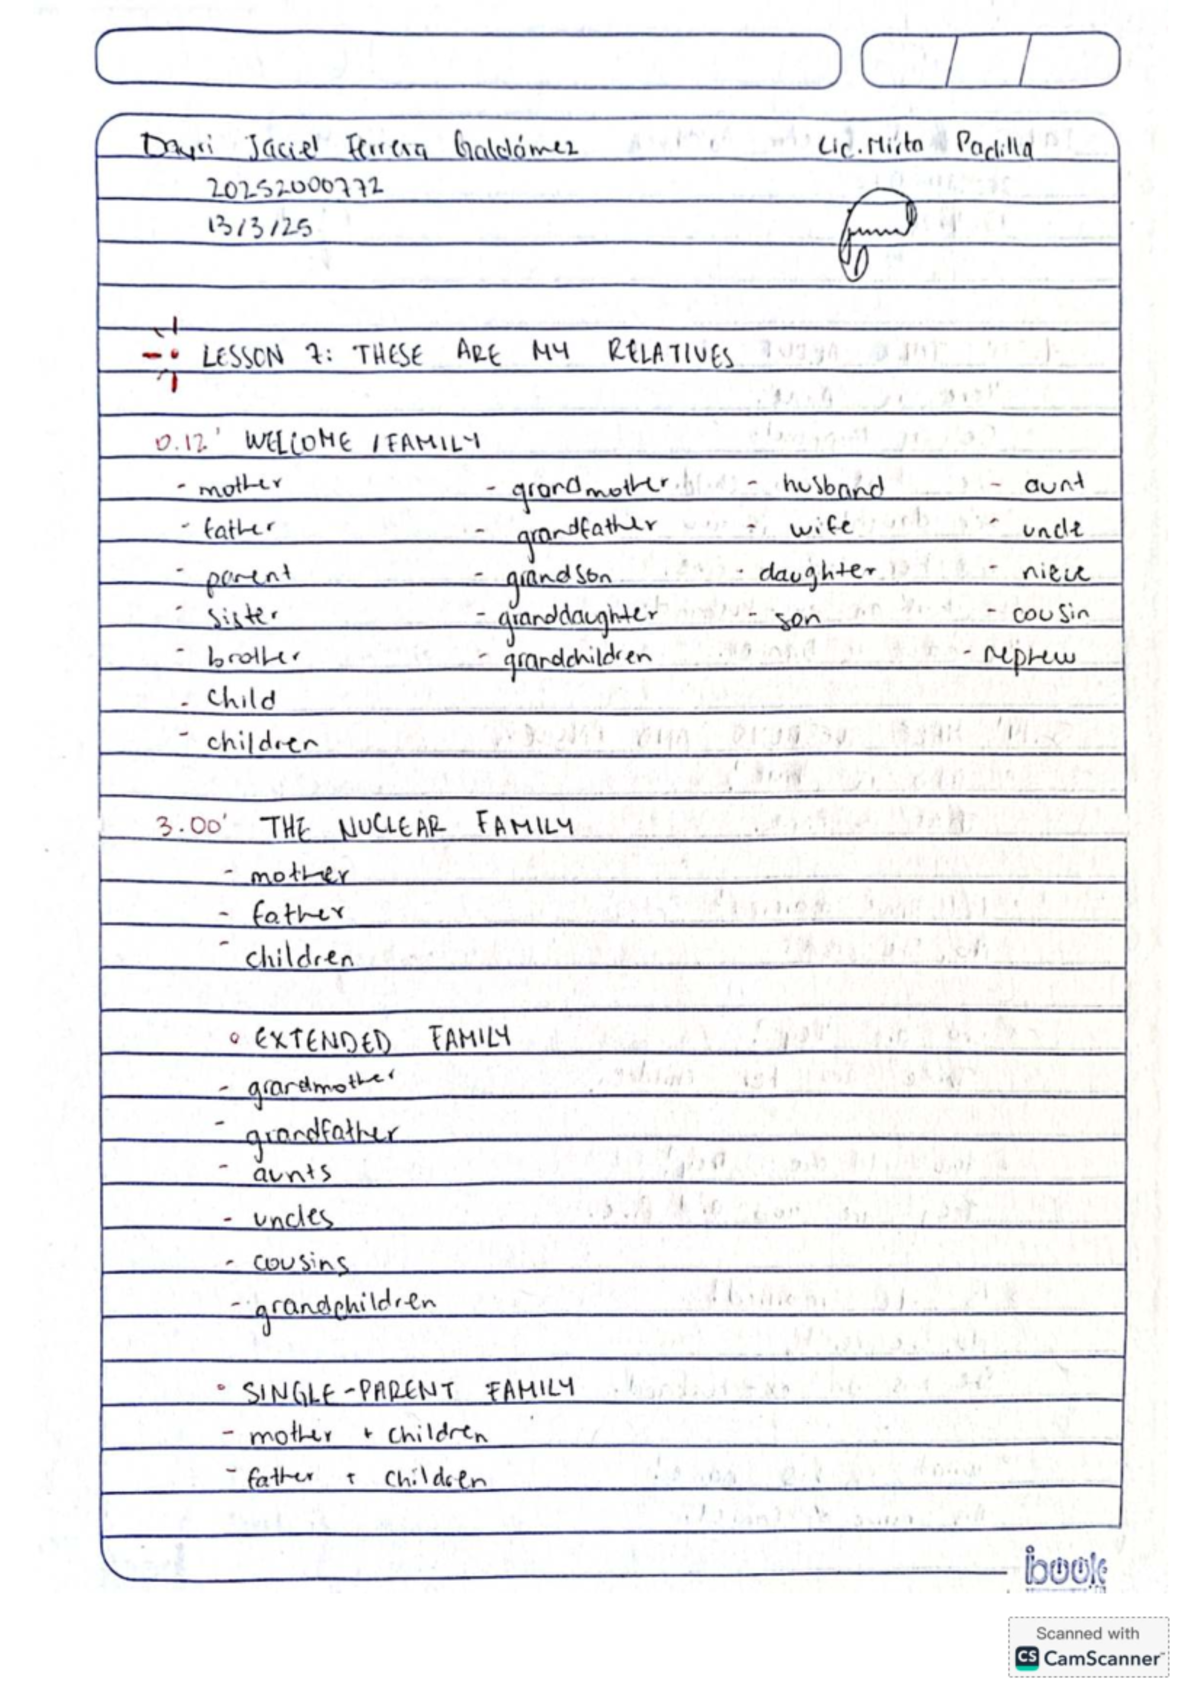 Dayri Jaciel Ferrera Galdámez Lic. Mirta Padilla
20252000772
13/3/25
LESSON 7: THESE ARE MY RELATIVES
0.12' WELCOME / FAMILY
- mother - grandmother - husband - aunt
- father - grandfather - wife - uncle
- parent - grandson - daughter - niece
- sister - granddaughter - son - cousin
- brother - grandchildren - nephew
- child
- children
3.00' THE NUCLEAR FAMILY
- mother
- father
- children
° EXTENDED FAMILY
- grandmother
- grandfather
- aunts
- uncles
- cousins
- grandchildren
° SINGLE-PARENT FAMILY
- mother + children
- father + children
ibook
Scanned with
CS CamScanner